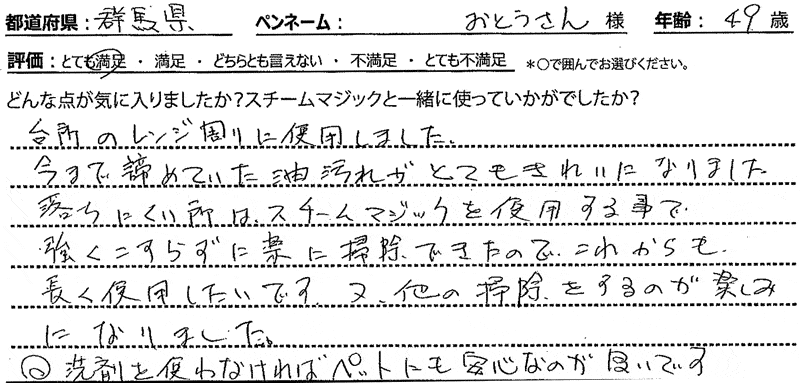 都道府県：群馬県 ペンネーム： おとうさん 様 年齢：49歳
評価：とても満足 ・ 満足 ・ どちらとも言えない ・ 不満足 ・ とても不満足 ＊○で囲んでお選びください。
どんな点が気に入りましたか？スチームマジックと一緒に使っていかがでしたか？
台所のレンジ周りに使用しました。
今まで諦めていた油汚れがとてもきれいになりました
落ちにくい所は、スチームマジックを使用する事で
強くこすらずに楽に掃除できたので、これからも
長く使用したいです。又、他の掃除をするのが楽しみ
になりました。
◎洗剤を使わなければペットにも安心なのが良いです